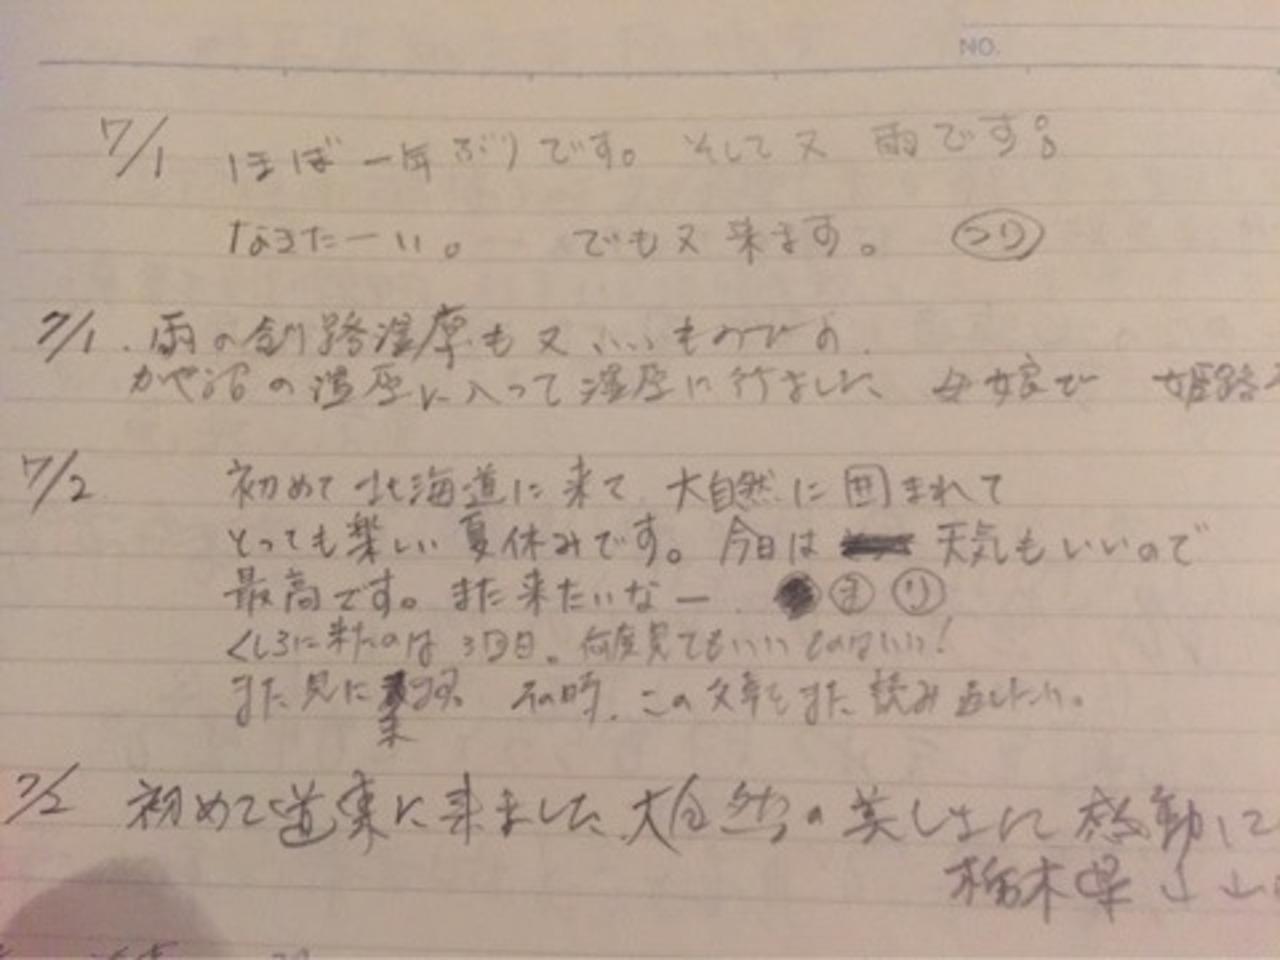 NO.
7/1 ほぼ一年ぶりです。そして又 雨です。
なきたーい。 でも又来ます。 つり
7/1. 雨の釧路湿原も又いいものでの.
の湿原に入って湿原に行ました 母娘で 姫路
7/2 初めて北海道に来て 大自然に囲まれて
とっても楽しい夏休みです。今日は 天気もいいので
最高です。また来たいなー. ま り
くしろに来たのは3回目。何度見てもいいものはいい!
また見に来ます。その時、この文章をまた読み返したい。
7/2 初めて道東に来ました 大自然の美しさに感動して
栃木県